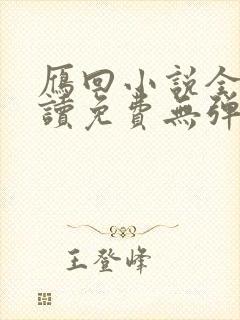 雁回小說全
讀免費無彈
王登峰